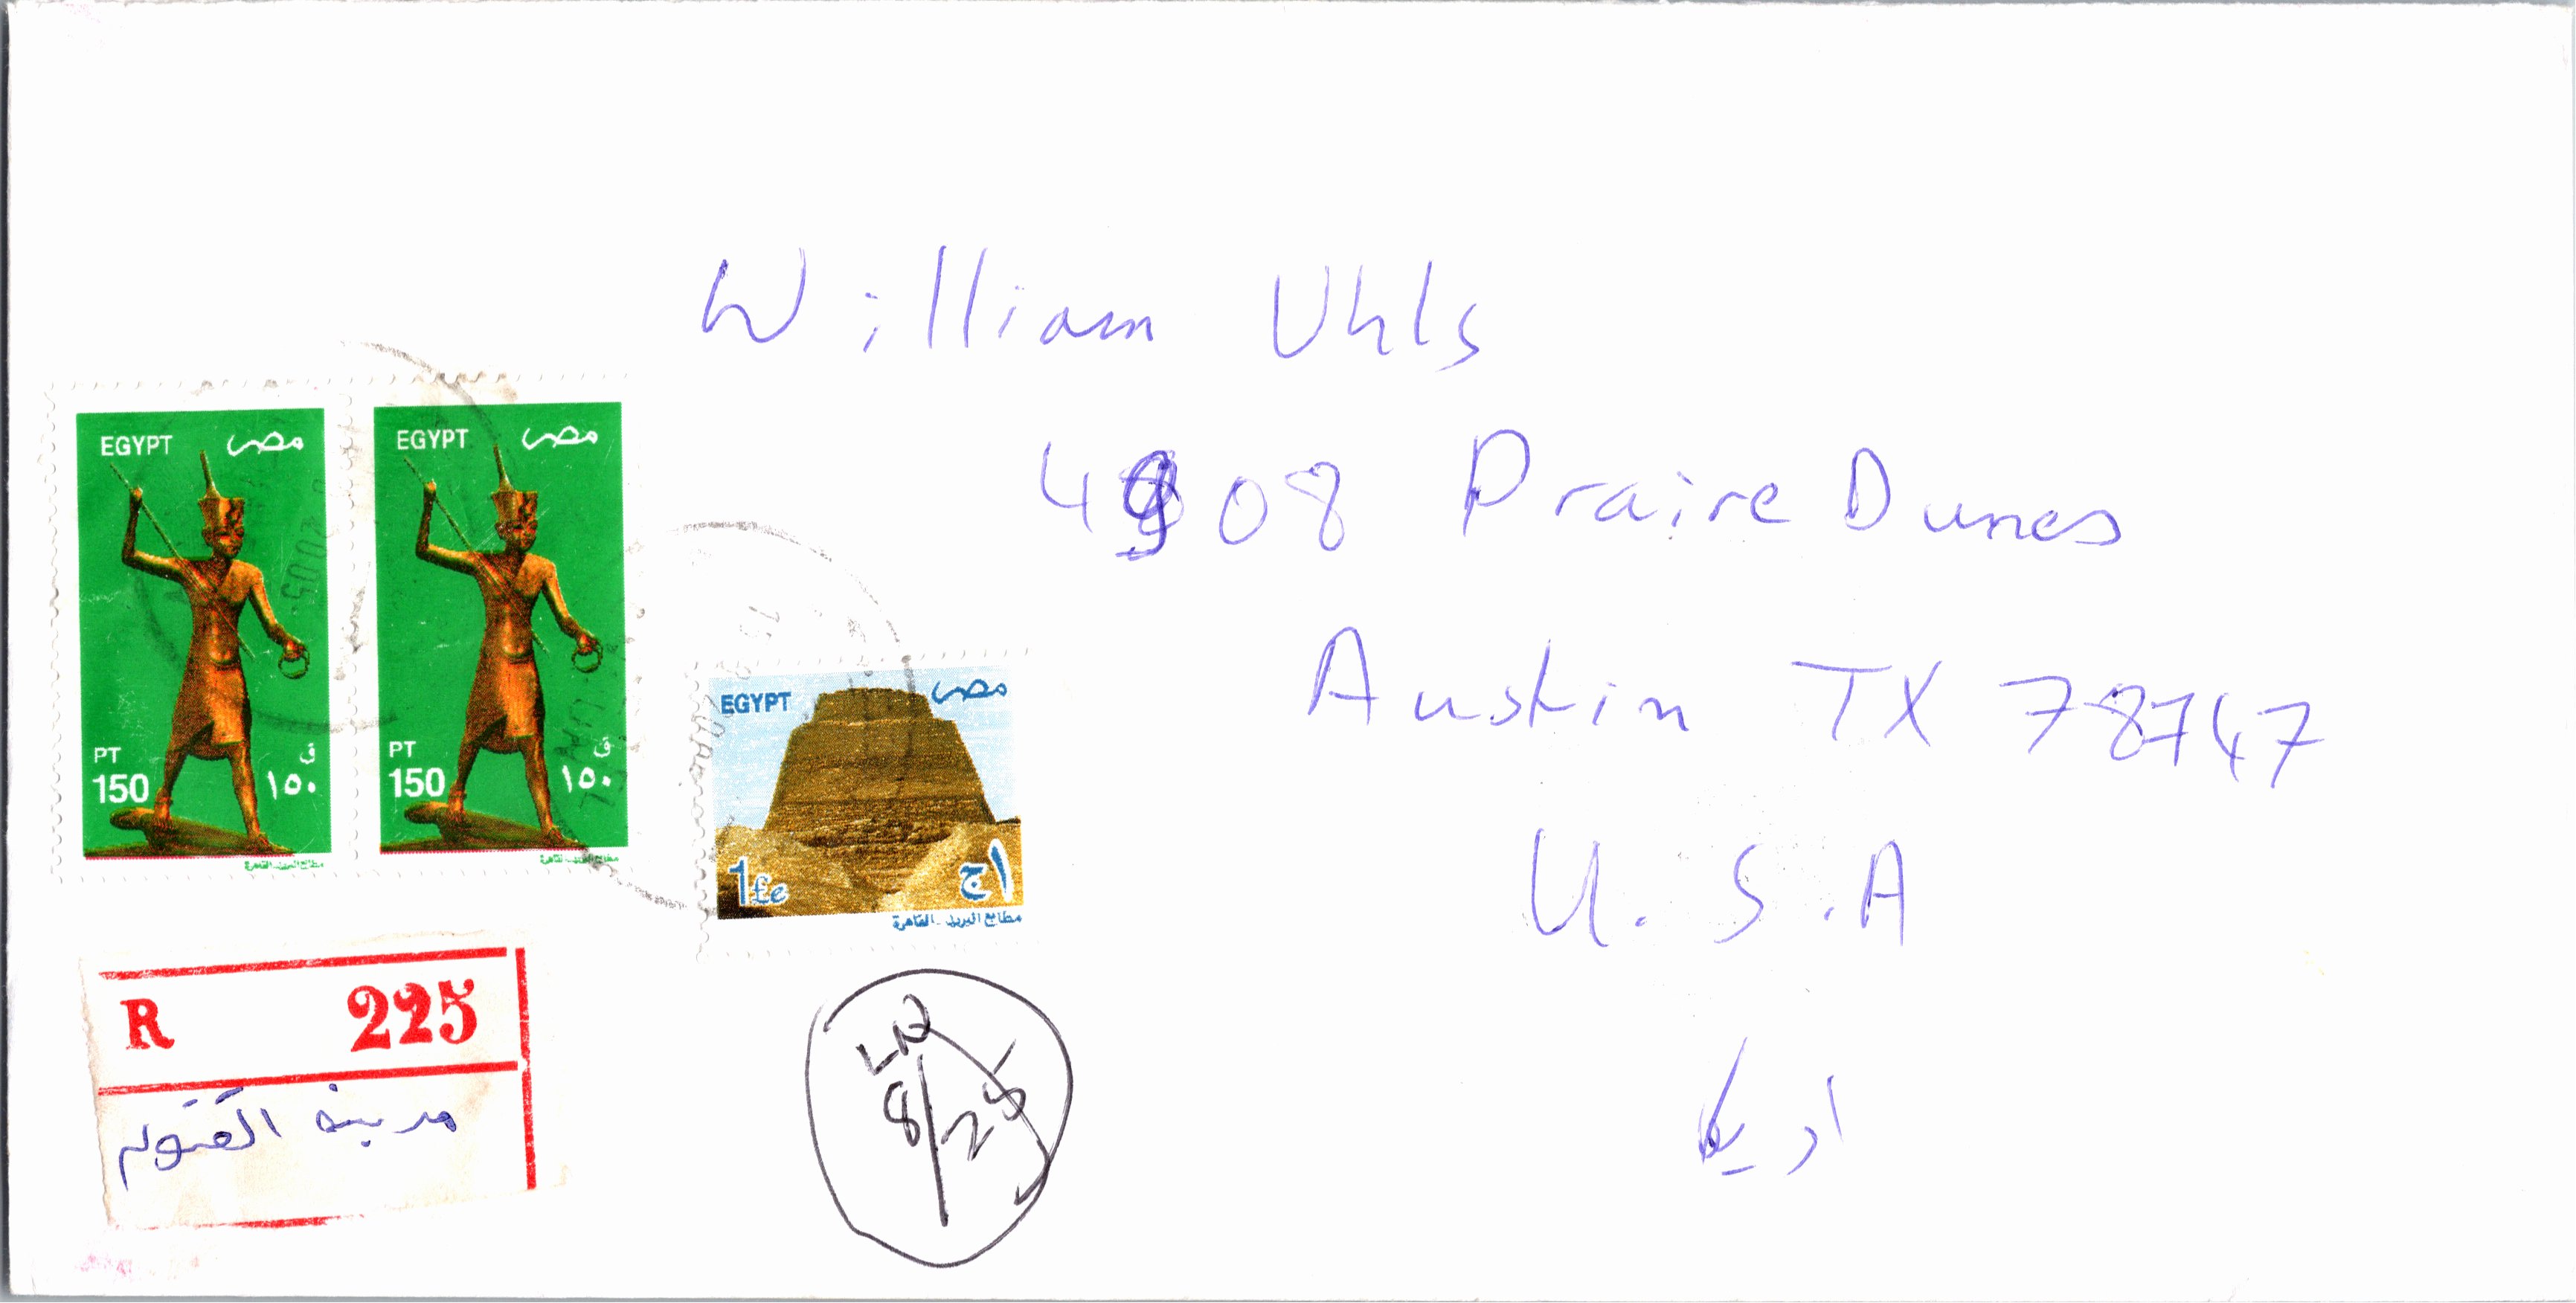 William Uhls
4908 Praire Dunes
Austin TX 78747
U.S.A
EGYPT مصر
PT ق
150 ١٥٠
مطابع البريد - القاهرة
EGYPT مصر
PT ق
150 ١٥٠
EGYPT مصر
1£e ١ج
مطابع البريد - القاهرة
R 225
مدينة الفيوم
8/25